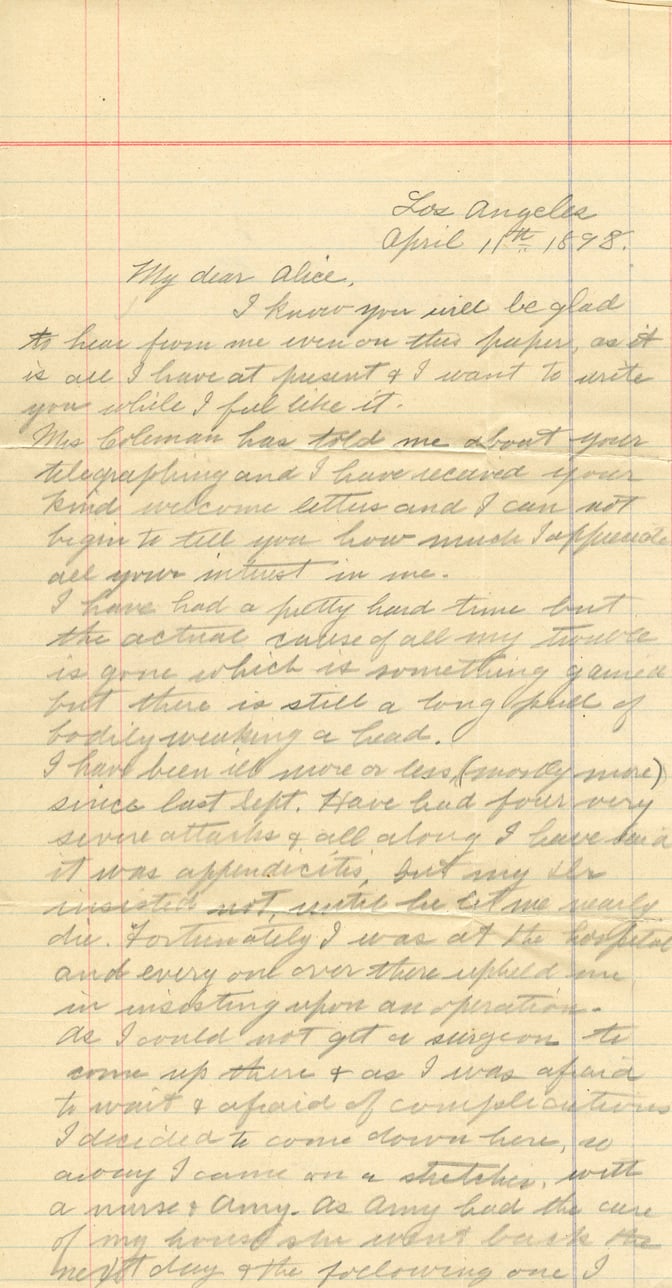 Los Angeles
April 11th 1898.
My dear Alice,
I know you will be glad
to hear from me even on this paper, as it
is all I have at present & I want to write
you while I feel like it.
Mrs Coleman has told me about your
telegraphing and I have received your
kind welcome letters and I can not
begin to tell you how much I appreciate
all your interest in me.
I have had a pretty hard time but
the actual cause of all my trouble
is gone which is something gained
but there is still a long pull of
bodily weaking a head.
I have been ill more or less (mostly more)
since last Sept. Have had four very
severe attacks & all along I have said
it was appendicitis, but my Dr
insisted not, until he let me nearly
die. Fortunately I was at the hospital
and every one over there upheld me
in insisting upon an operation.
As I could not get a surgeon to
come up there & as I was afraid
to wait & afraid of complications
I decided to come down here, so
away I came on a stretcher, with
a nurse & Amy. As Amy had the care
of my house she went back the
next day & the following one I